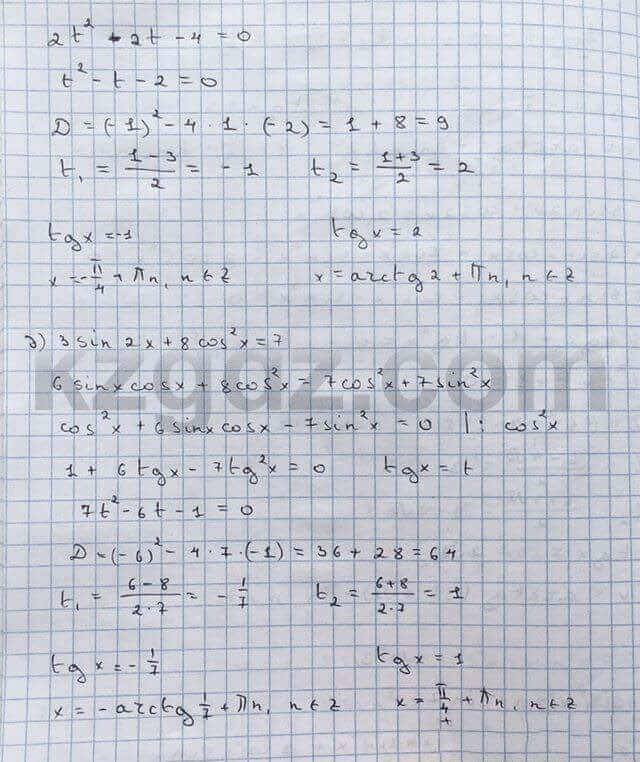 2t² - 2t - 4 = 0
t² - t - 2 = 0
D = (-1)² - 4 · 1 · (-2) = 1 + 8 = 9
t₁ = (1-3)/2 = -1 t₂ = (1+3)/2 = 2
tg x = -1 tg x = 2
x = -π/4 + πn, n ∈ Z x = arctg 2 + πn, n ∈ Z
д) 3 sin 2x + 8 cos²x = 7
6 sinx cosx + 8cos²x = 7cos²x + 7sin²x
kzgdz.com
cos²x + 6 sinx cosx - 7sin²x = 0 |: cos²x
1 + 6 tgx - 7tg²x = 0 tgx = t
7t² - 6t - 1 = 0
D = (-6)² - 4 · 7 · (-1) = 36 + 28 = 64
t₁ = (6-8)/(2·7) = -1/7 t₂ = (6+8)/(2·7) = 1
tg x = -1/7 tg x = 1
x = -arctg 1/7 + πn, n ∈ Z x = π/4 + πn, n ∈ Z